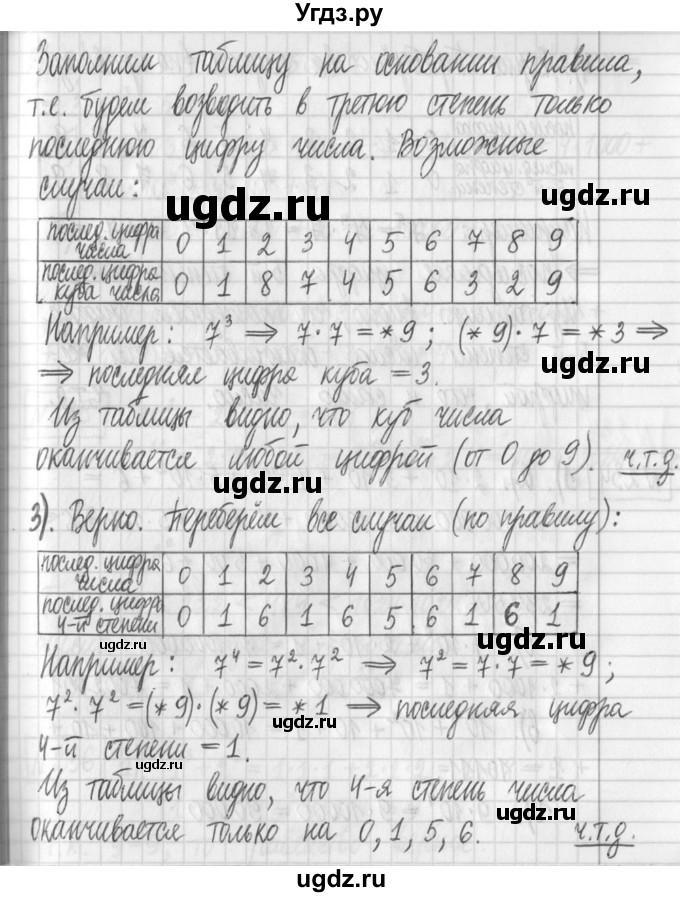 Угдз.ру
Заполним таблицу на основании правила,
т.е. будем возводить в третью степень только
последнюю цифру числа. Возможные
случаи:
ugdz.ru
ugdz.ru
послед. цифра числа 0 1 2 3 4 5 6 7 8 9
послед. цифра куба числа 0 1 8 7 4 5 6 3 2 9
ugdz.ru
Например: 7³ ⇒ 7·7 = *9; (*9)·7 = *3 ⇒
ugdz.ru
⇒ последняя цифра куба = 3.
Из таблицы видно, что куб числа
оканчивается любой цифрой (от 0 до 9). ч.т.д.
ugdz.ru
3). Верно. Переберём все случаи (по правилу):
ugdz.ru
послед. цифра числа 0 1 2 3 4 5 6 7 8 9
послед. цифра 4-й степени 0 1 6 1 6 5 6 1 6 1
ugdz.ru
ugdz.ru
Например: 7⁴ = 7²·7² ⇒ 7² = 7·7 = *9;
7²·7² = (*9)·(*9) = *1 ⇒ последняя цифра
ugdz.ru
4-й степени = 1.
ugdz.ru
Из таблицы видно, что 4-я степень числа
оканчивается только на 0, 1, 5, 6. ч.т.д.
ugdz.ru
ugdz.ru
ugdz.ru